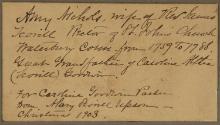 Amy Nichols, wife of Rev James
Scovill Rector of St. Johns Church
Waterbury Conn from 1759 to 1788.
Great Grandfather of Caroline
(Scovill) Goodwin.
For Caroline Goodwin
from Mary Scovill
Christmas 1903.